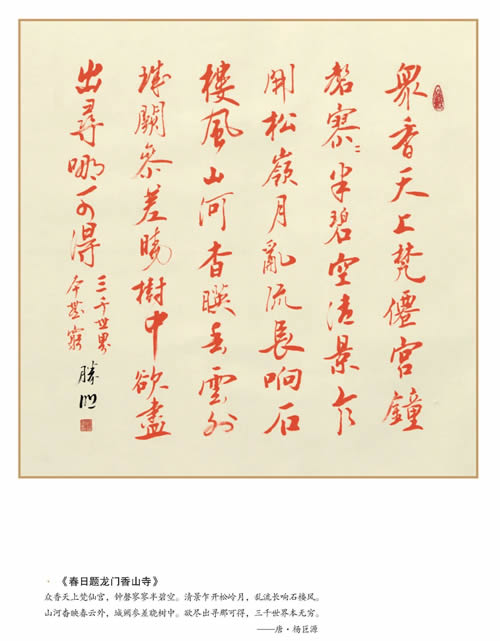 眾香天上梵僊宮鐘
磬寥〻半碧空清景乍
開松嶺月亂流長响石
樓風山河杳暎春雲外
城闕參差曉樹中欲盡
出尋哪可得
三千世界
本無窮
勝
《春日题龙门香山寺》
众香天上梵仙宫，钟磬寥寥半碧空。清景乍开松岭月，乱流长响石楼风。
山河杳映春云外，城阙参差晓树中。欲尽出寻那可得，三千世界本无穷。
——唐·杨巨源